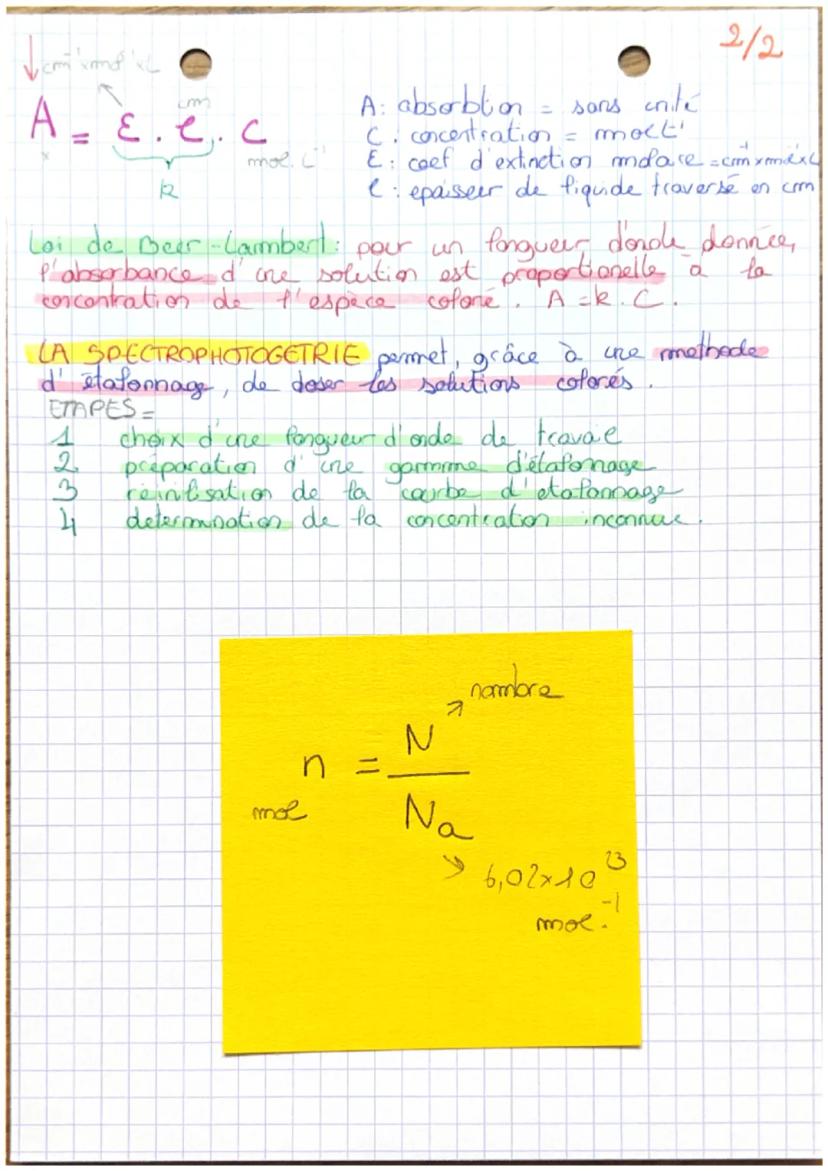 2/2
cm⁻¹xmol⁻¹xL
cm
A = ε . l . C
mol. L⁻¹
k
A: absorbtion = sans unité
C: concentration = mol L⁻¹
ε: coef d'extinction molaire = cm⁻¹xmol⁻¹xL
l: epaisseur de liquide traversé en cm
Loi de Beer-Lambert: pour un longueur d'onde donnée,
l'absorbance d'une solution est proportionelle à la
concentration de l'espèce coloré. A = k . C .
LA SPECTROPHOTOGETRIE permet, grâce à une methode
d'étalonnage, de doser les solutions colorés.
ETAPES =
1 choix d'une longueur d'onde de travail
2 préparation d'une gamme d'étalonnage
3 réinilisation de la courbe d'etalonnage
4 determination de la concentration inconnue.
nombre
n = N
Na
mol
6,02x10²³
mol.⁻¹